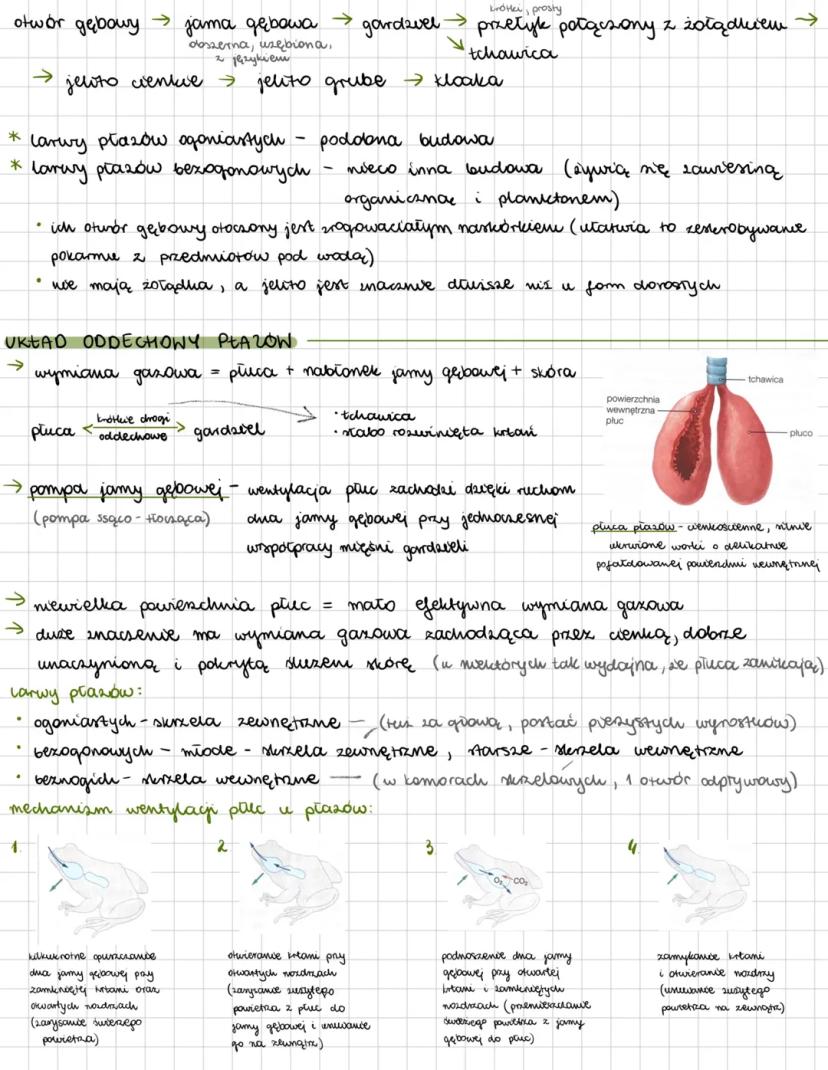 krótki, prosty
otwór gębowy → jama gębowa → gardziel → przełyk połączony z żołądkiem →
obszerna, uzębiona, z językiem
↘ tchawica
→ jelito cienkie → jelito grube → kloaka
* larwy płazów ogoniastych - podobna budowa
* larwy płazów bezogonowych - nieco inna budowa (żywią się zawiesiną
organiczną i planktonem)
• ich otwór gębowy otoczony jest zrogowaciałym naskórkiem (ułatwia to zeskrobywanie
pokarmu z przedmiotów pod wodą)
• nie mają żołądka, a jelito jest znacznie dłuższe niż u form dorosłych
UKŁAD ODDECHOWY PŁAZÓW
→ wymiana gazowa = płuca + nabłonek jamy gębowej + skóra
płuca ← krótkie drogi oddechowe → gardziel
• tchawica
• słabo rozwinięta krtań
tchawica
powierzchnia
wewnętrzna
płuc
płuco
→ pompa jamy gębowej - wentylacja płuc zachodzi dzięki ruchom
(pompa ssąco-tłocząca) dna jamy gębowej przy jednoczesnej
współpracy mięśni gardzieli
płuca płazów - cienkościenne, silnie
ukrwione worki o delikatnie
pofałdowanej powierzchni wewnętrznej
→ niewielka powierzchnia płuc = mało efektywna wymiana gazowa
→ duże znaczenie ma wymiana gazowa zachodząca przez cienką, dobrze
unaczynioną i pokrytą śluzem skórę (u niektórych tak wydajna, że płuca zanikają)
larwy płazów:
• ogoniastych - skrzela zewnętrzne - (tuż za głową, postać pierzystych wyrostków)
• bezogonowych - młode - skrzela zewnętrzne, starsze - skrzela wewnętrzne
• beznogich - skrzela wewnętrzne — (w komorach skrzelowych, 1 otwór odpływowy)
mechanizm wentylacji płuc u płazów:
1.
kilkukrotne opuszczanie
dna jamy gębowej przy
zamkniętej krtani oraz
otwartych nozdrzach
(zasysanie świeżego
powietrza)
2
otwieranie krtani przy
otwartych nozdrzach
(zasysanie zużytego
powietrza z płuc do
jamy gębowej i usuwanie
go na zewnątrz)
3.
O₂ CO₂
podnoszenie dna jamy
gębowej przy otwartej
krtani i zamkniętych
nozdrzach (przemieszczanie
świeżego powietrza z jamy
gębowej do płuc)
4.
zamykanie krtani
i otwieranie nozdrzy
(usuwanie zużytego
powietrza na zewnątrz)